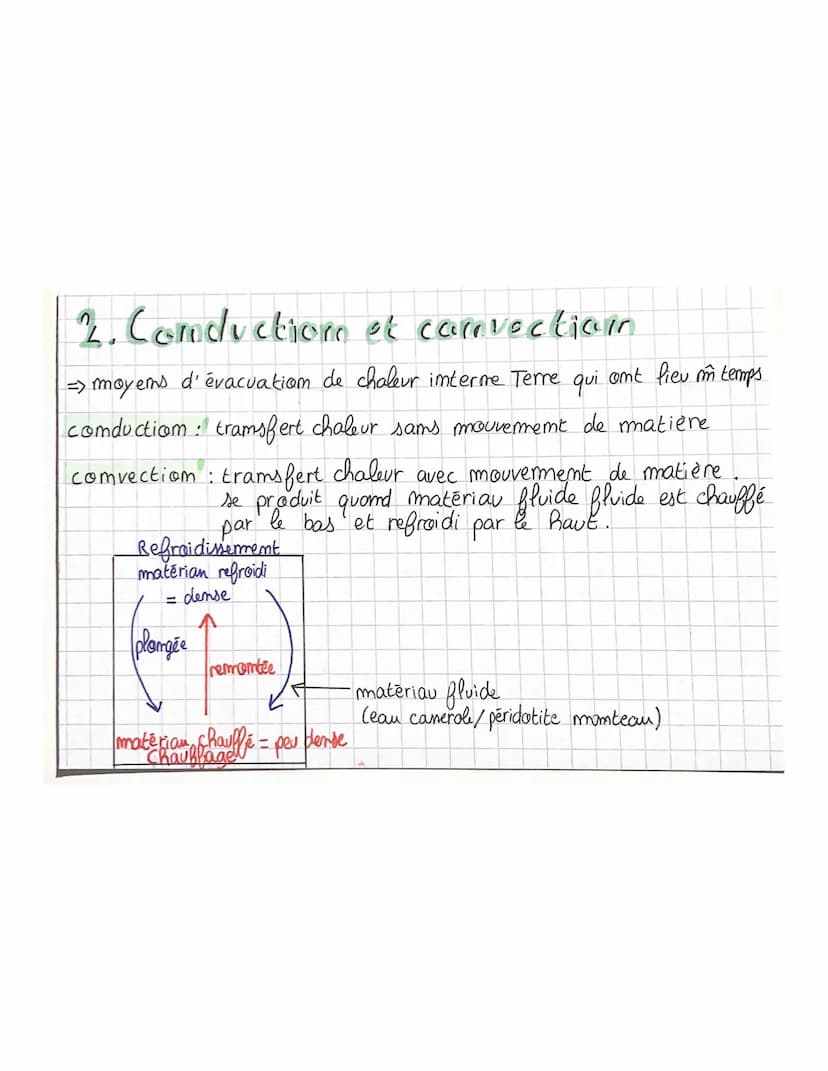 2. Conduction et convection
⇒ moyens d'évacuation de chaleur interne Terre qui ont lieu m̂ temps
conduction : transfert chaleur sans mouvement de matière
convection : transfert chaleur avec mouvement de matière.
se produit quand matériau fluide fluide est chauffé
par le bas et refroidi par le haut.
Refroidissement
matériau refroidi
= dense
plongée
remontée
matériau fluide
(eau casserole/péridotite manteau)
matériau chauffé = peu dense
Chauffage